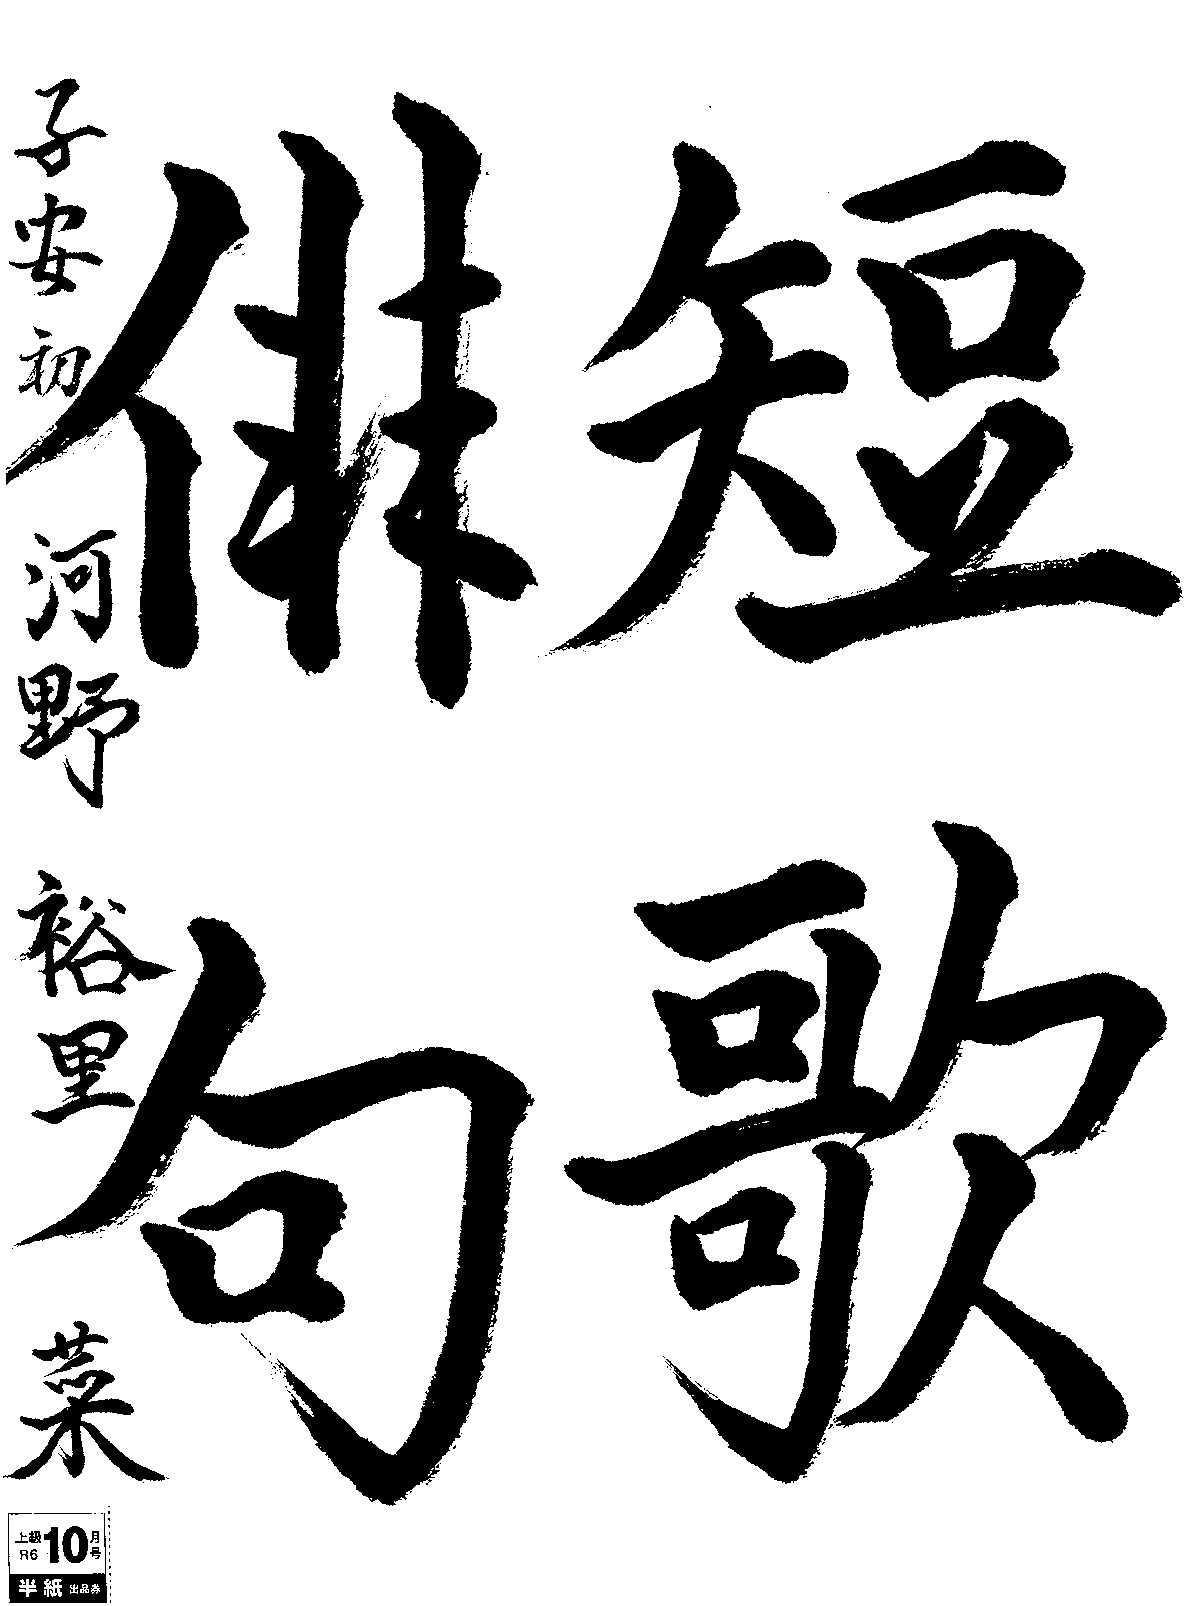 短歌
俳句
子安 初 河野 裕里菜
上級 R6 10月号
半紙 出品券